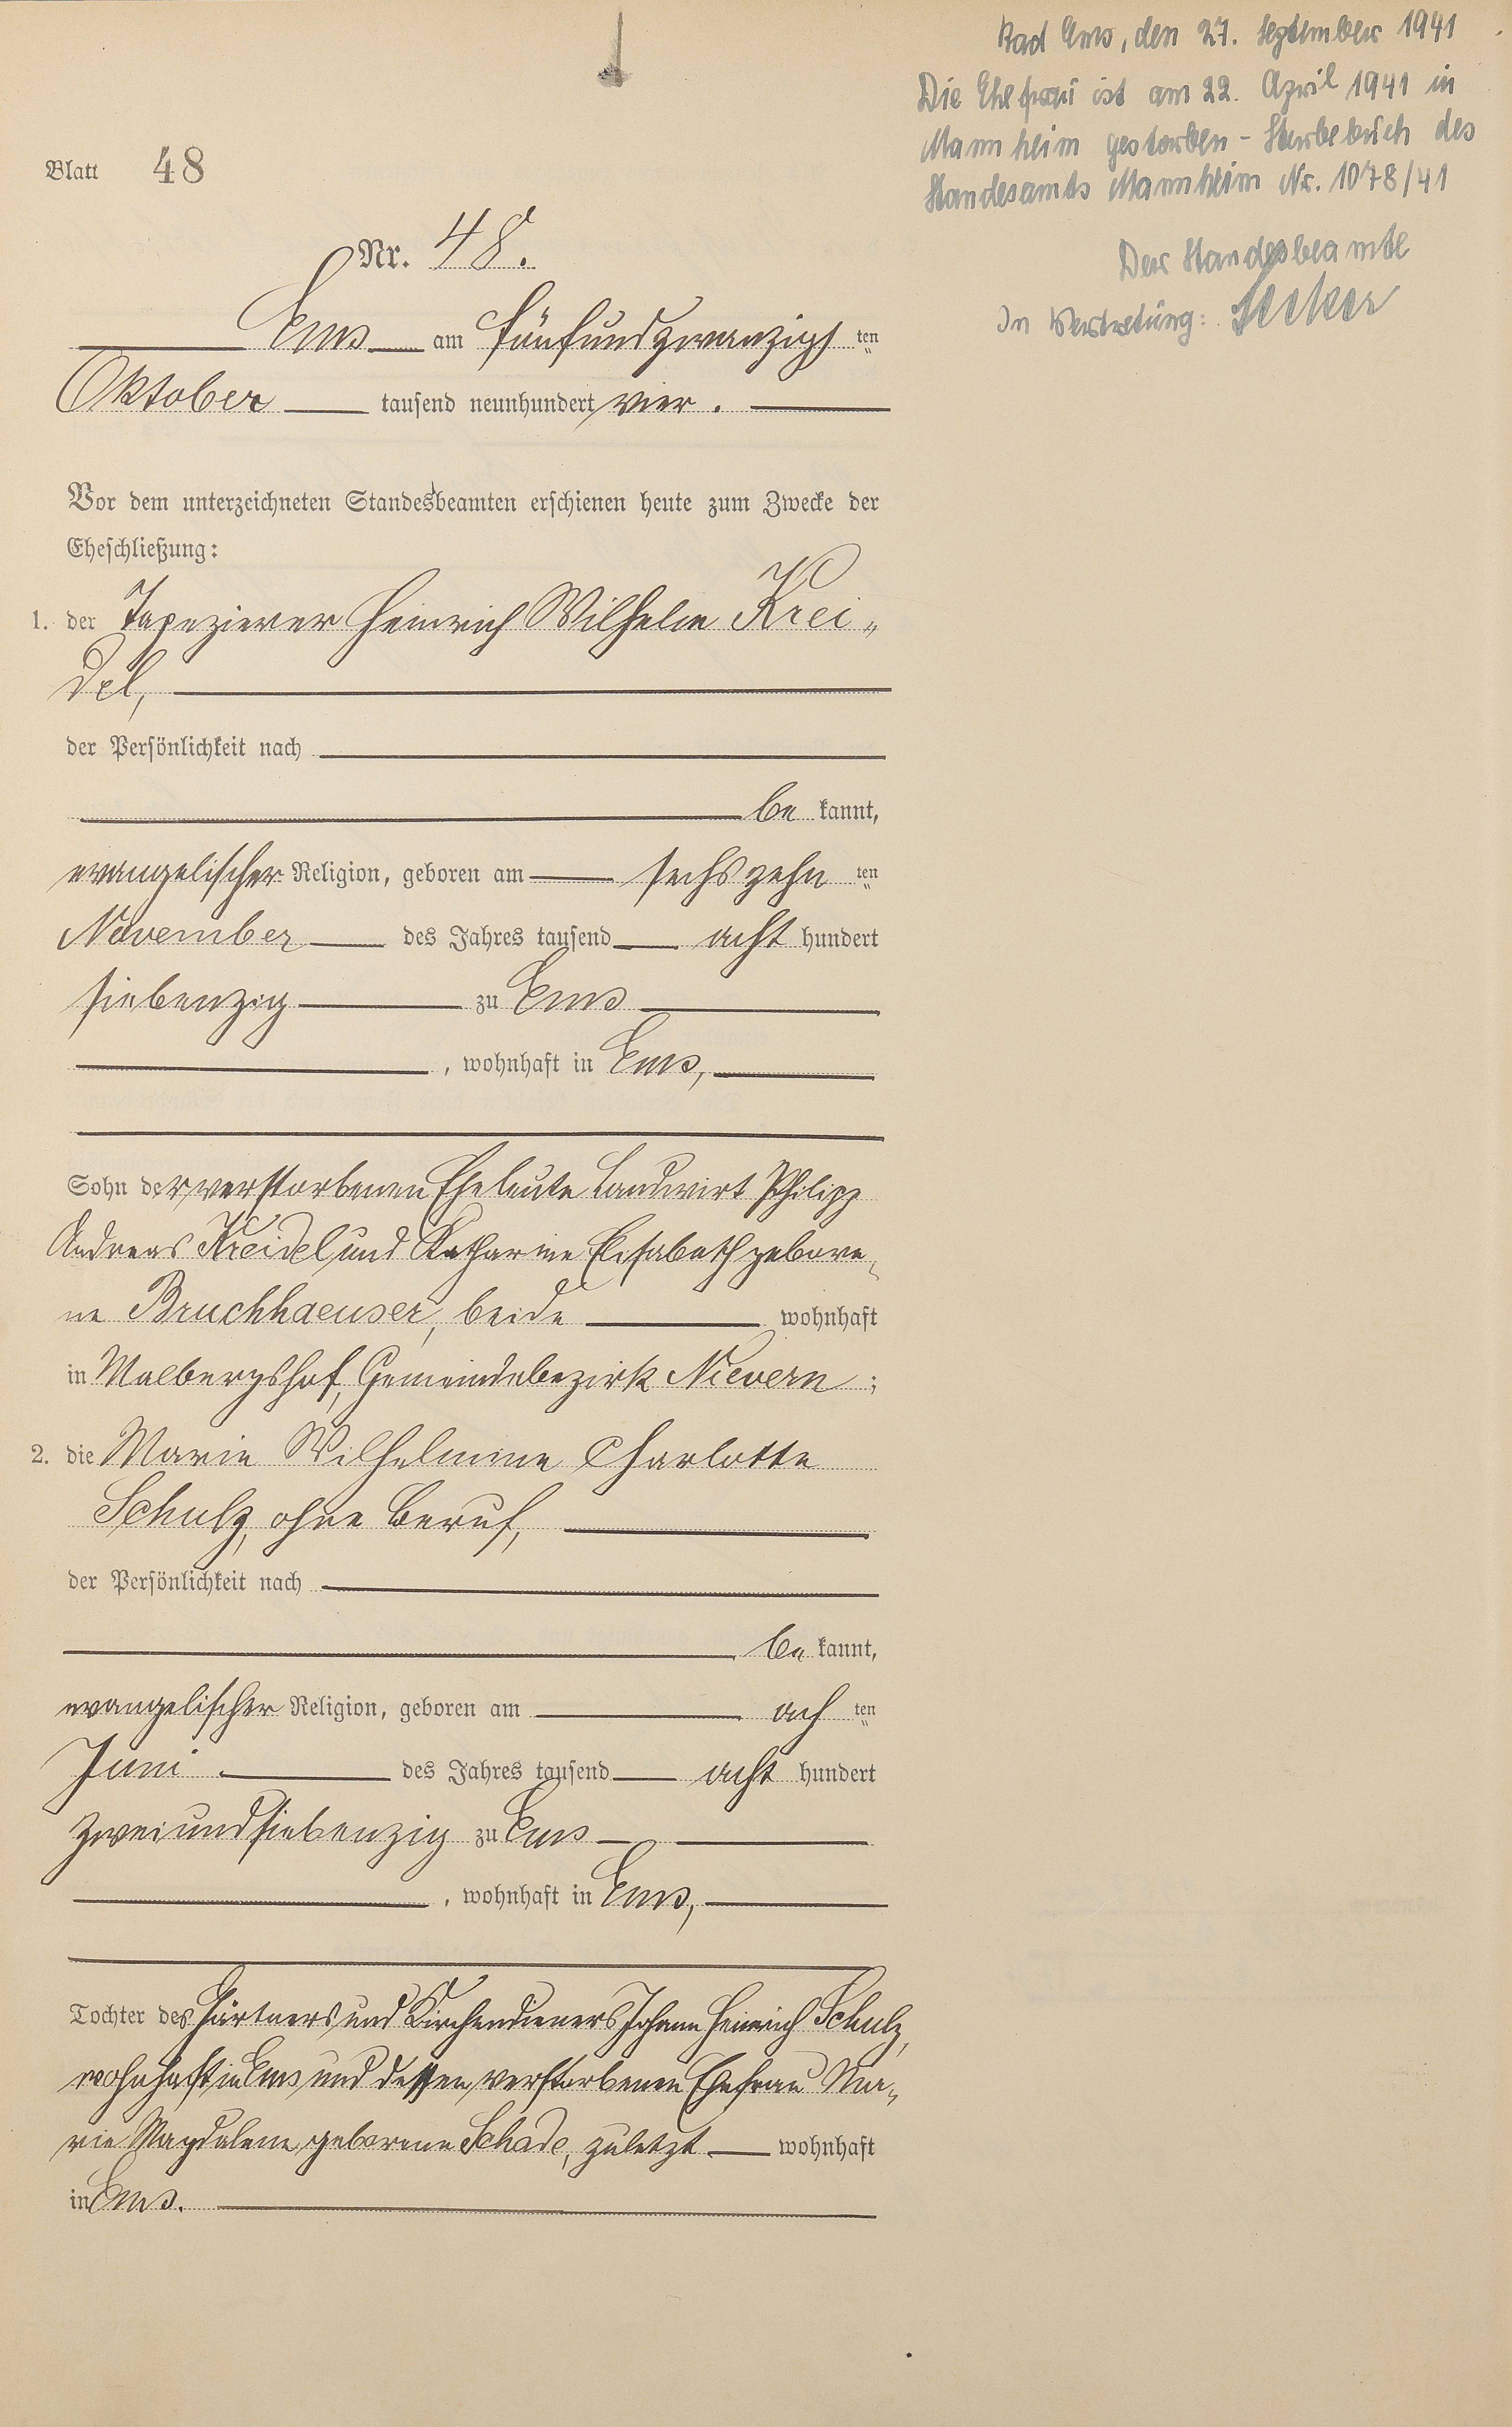 Blatt 48
Nr. 48.
Ems am fünfundzwanzigs ten
Oktober tausend neunhundert vier.
Vor dem unterzeichneten Standesbeamten erschienen heute zum Zwecke der
Eheschließung:
1. der Tapezierer Heinrich Wilhelm Krei„
del,
der Persönlichkeit nach
be kannt,
evangelischer Religion, geboren am sechszehn ten
November des Jahres tausend acht hundert
siebenzig zu Ems
, wohnhaft in Ems,
Sohn der verstorbenen Eheleute Landwirt Philipp
Andreas Kreidel und Katharine Elisabeth gebore„
ne Bruchhaeuser, beide wohnhaft
in Malbergshof, Gemeindebezirk Nievern;
2. die Marie Wilhelmine Charlotte
Schulz, ohne Beruf,
der Persönlichkeit nach
be kannt,
evangelischer Religion, geboren am ach ten
Juni des Jahres tausend acht hundert
zweiundsiebenzig zu Ems
, wohnhaft in Ems,
Tochter des Gärtners und Kirchendieners Johann Heinrich Schulz,
wohnhaft in Ems und dessen verstorbenen Ehefrau Ma„
rie Magdalene geborene Schade, zuletzt wohnhaft
in Ems.
Bad Ems, den 27. September 1941
Die Ehefrau ist am 22. April 1941 in
Mannheim gestorben - Sterbebuch des
Standesamts Mannheim Nr. 1078/41
Der Standesbeamte
In Vertretung: